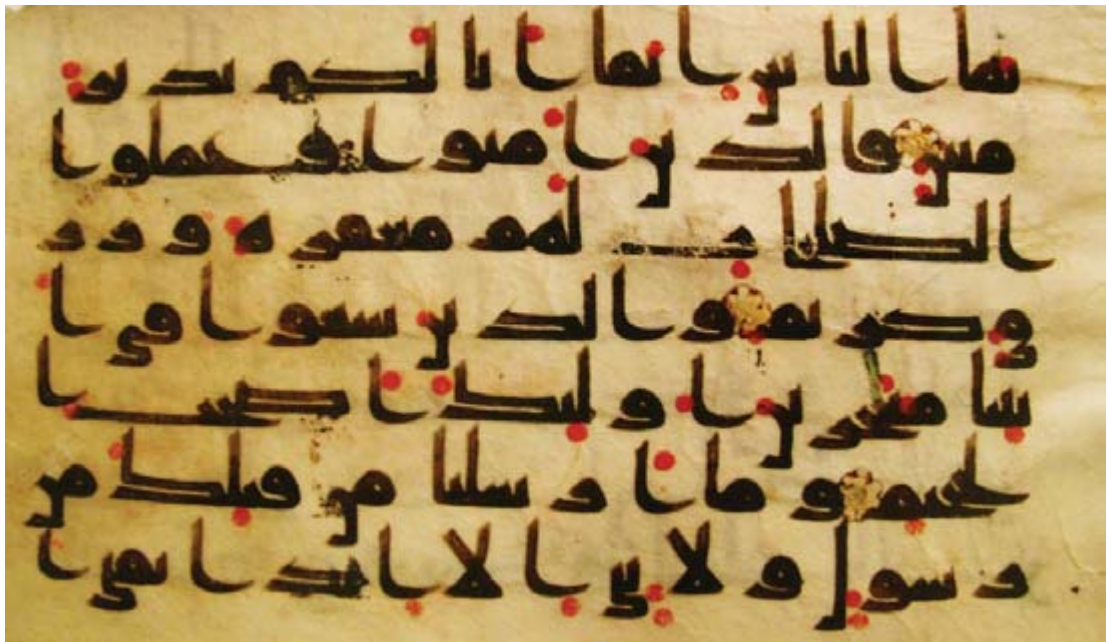 يها الناس انما انا لكم نذير
مبين فالذين امنوا وعملوا
الصلحت لهم مغفرة ورز
ق كريم والذين سعوا في ا
يتنا معجزين اولئك اصحب ا
لجحيم وما ارسلنا من قبلك من
رسول ولا نبي الا اذا تمنى ا